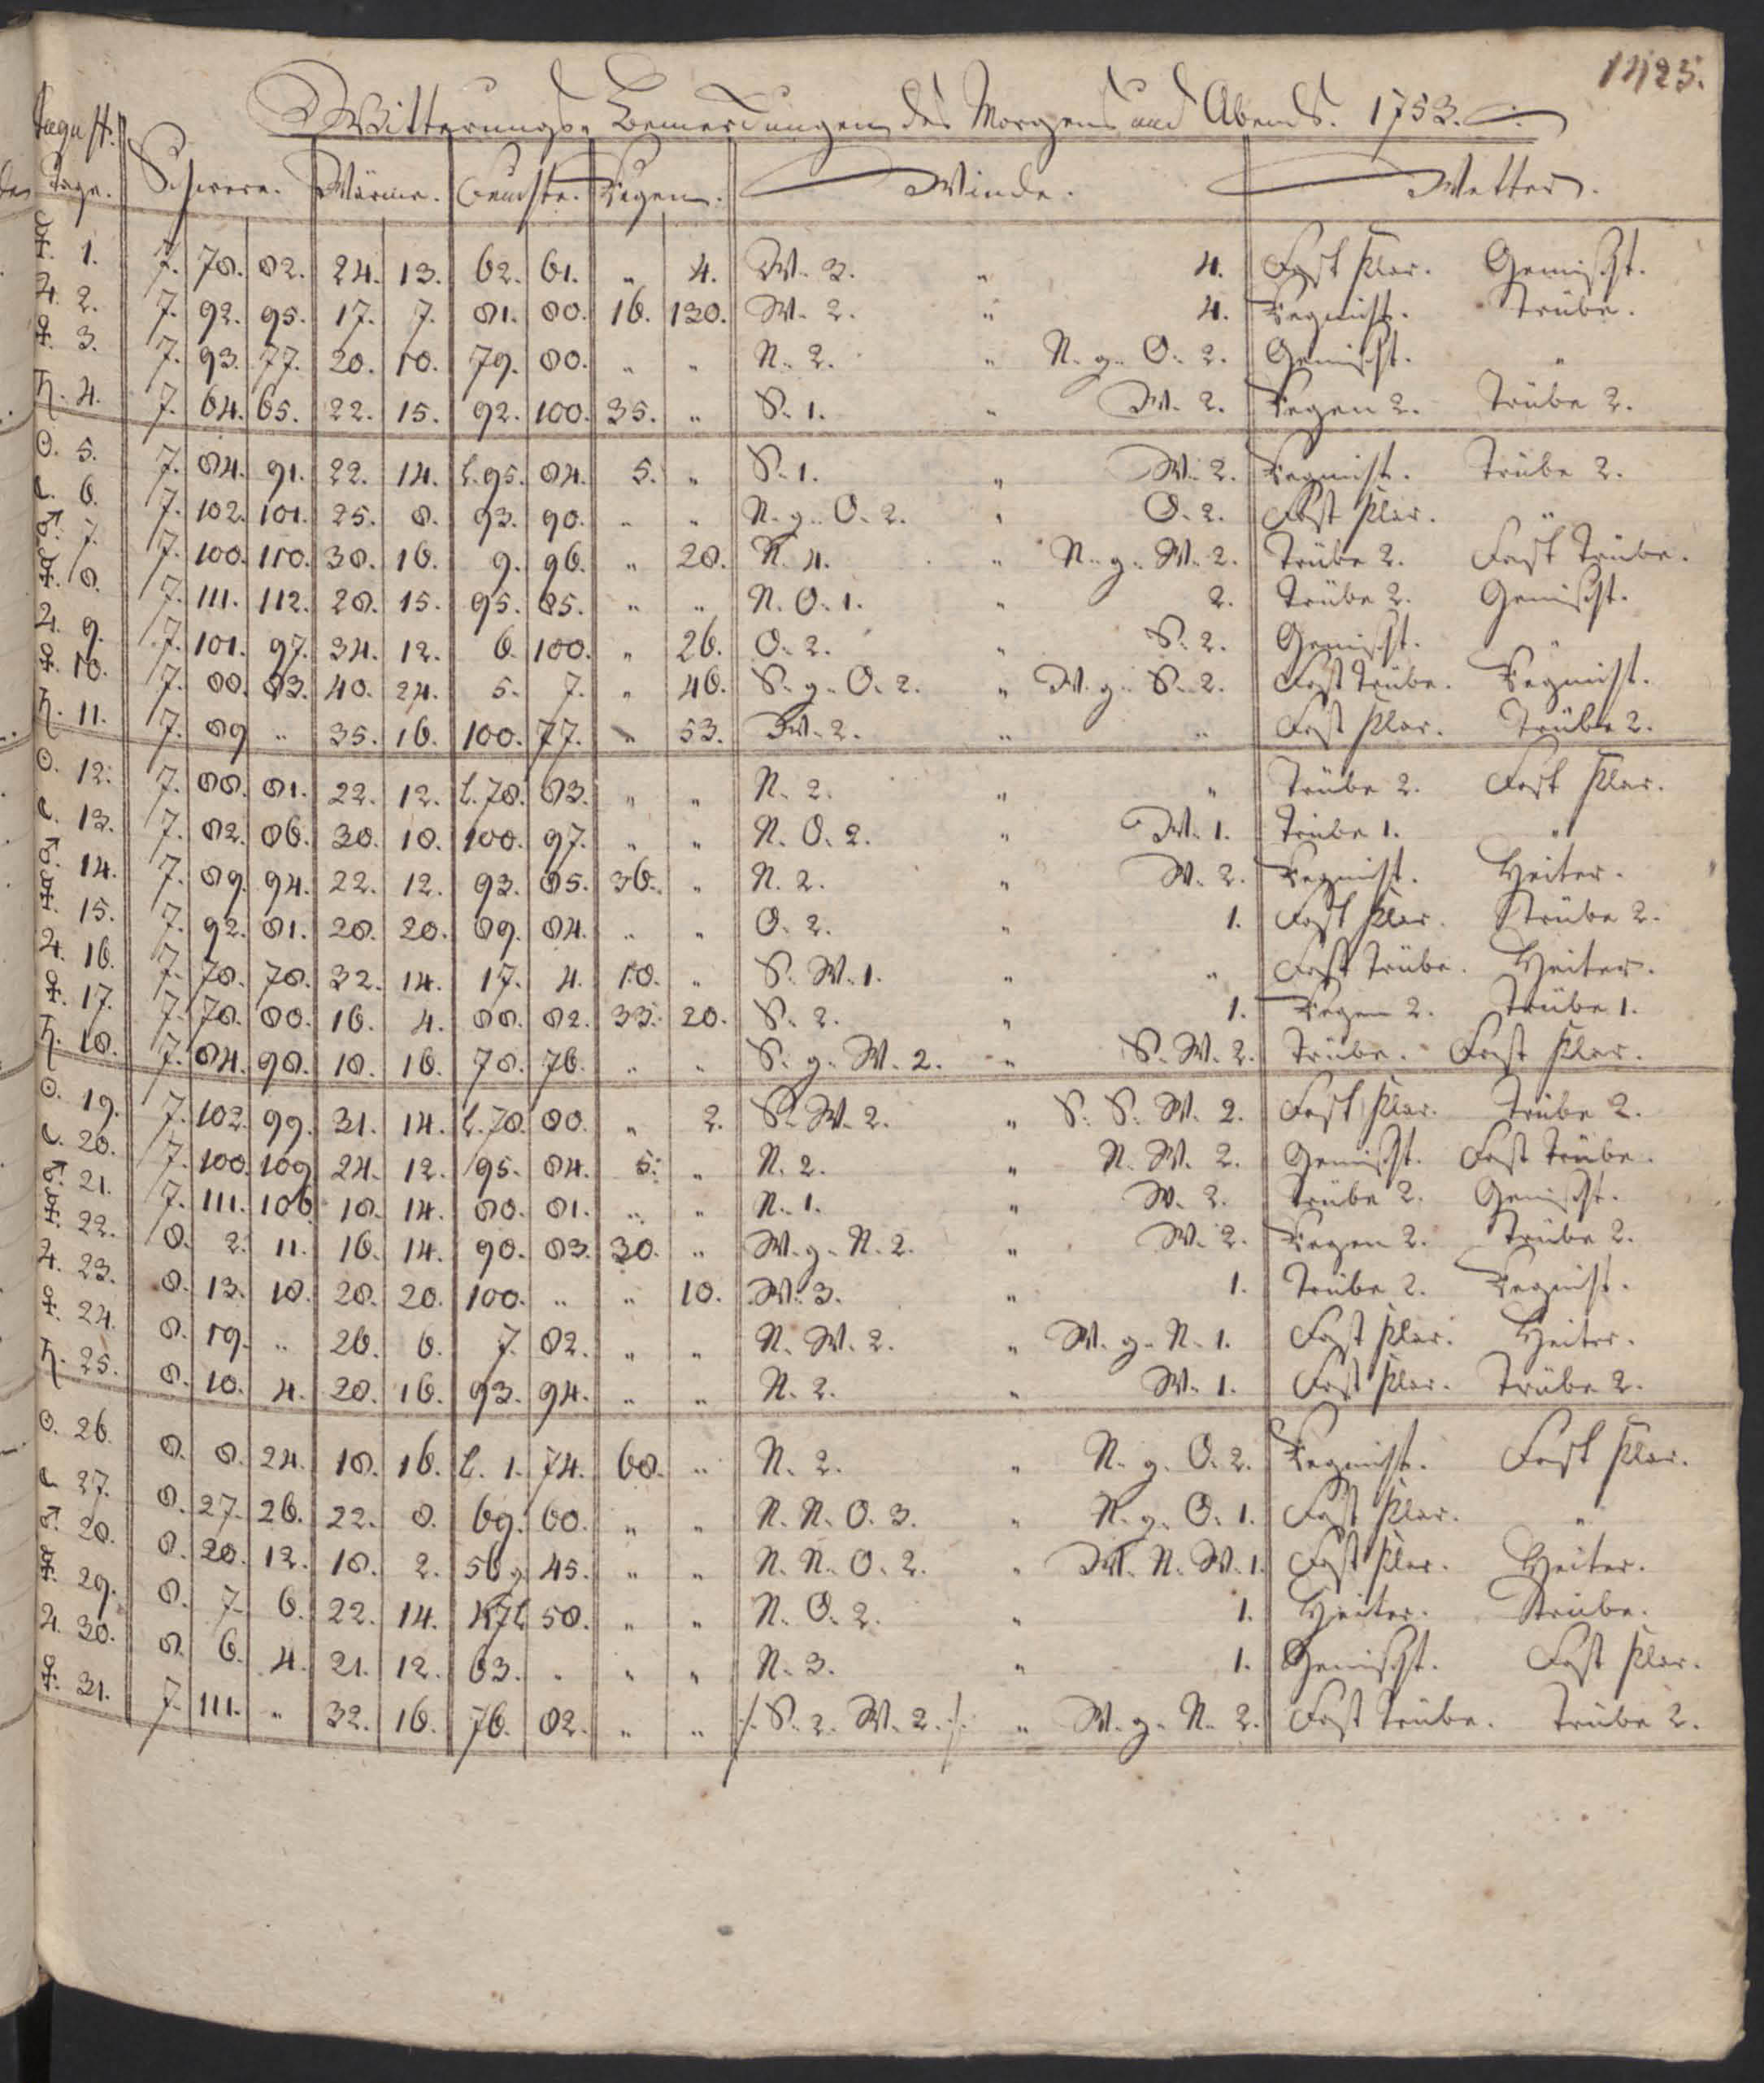 1425.
Witterungs- Bemerckungen des Morgens und Abends. 1753.
August.
Tage. Schwere. Wärme. Feuchte. Regen. Winde. Wetter.
☿. 1. 7. 78. 82. 24. 13. 62. 61. „ 4. W. 3. „ 4. Fast klar. Gemischt.
♃. 2. 7. 92. 95. 17. 7. 81. 80. 16. 130. W. 2. „ 4. Regnicht. Trübe.
♀. 3. 7. 93. 77. 20. 10. 79. 80. „ „ N. 2. „ N. g. O. 2. Gemischt. „
♄. 4. 7. 64. 65. 22. 15. 92. 100. 35. „ S. 1. „ W. 2. Regen 2. Trübe 2.
☉. 5. 7. 84. 91. 22. 14. L. 95. 84. 5. „ S. 1. „ W. 2. Regnicht. Trübe 2.
☾. 6. 7. 102. 101. 25. 8. 93. 90. „ „ N. g. O. 2. „ O. 2. Fast klar. „
♂. 7. 7. 100. 110. 38. 16. 9. 96. „ 28. N. 4. „ N. g. W. 2. Trübe 2. Fast Trübe.
☿. 8. 7. 111. 112. 28. 15. 95. 85. „ „ N. O. 1. „ 2. Trübe 2. Gemischt.
♃. 9. 7. 101. 97. 34. 12. 6. 100. „ 26. O. 2. „ S. 2. Gemischt. „
♀. 10. 7. 88. 83. 40. 24. 5. 7. „ 46. S. g. O. 2. „ W. g. S. 2. Fast Trübe. Regnicht.
♄. 11. 7. 89 „ 35. 16. 100. 77. „ 53. W. 2. „ „ Fast klar. Trübe 2.
☉. 12. 7. 88. 81. 22. 12. L. 78. 83. „ „ N. 2. „ „ Trübe 2. Fast klar.
☾. 13. 7. 82. 86. 30. 18. 100. 97. „ „ N. O. 2. „ W. 1. Trübe 1. „
♂. 14. 7. 89. 94. 22. 12. 93. 85. 36. „ N. 2. „ W. 2. Regnicht. Heiter.
☿. 15. 7. 92. 81. 28. 20. 89. 84. „ „ O. 2. „ 1. Fast klar. Trübe 2.
♃. 16. 7. 78. 78. 32. 14. 17. 4. 18. „ S. W. 1. „ „ Fast Trübe. Heiter.
♀. 17. 7. 78. 80. 16. 4. 88. 82. 33. 20. S. 2. „ 1. Regen 2. Trübe 1.
♄. 18. 7. 84. 98. 18. 16. 78. 76. „ „ S. g. W. 2. „ S. W. 2. Trübe. Fast klar.
☉. 19. 7. 102. 99. 31. 14. L. 78. 80. „ 2. S. W. 2. „ S. S. W. 2. Fast klar. Trübe 2.
☾. 20. 7. 100. 109 24. 12. 95. 84. 5. „ N. 2. „ N. W. 2. Gemischt. Fast Trübe.
♂. 21. 7. 111. 106 18. 14. 80. 81. „ „ N. 1. „ W. 2. Trübe 2. Gemischt.
☿. 22. 8. 2. 11. 16. 14. 90. 83. 30. „ W. g. N. 2. „ W. 2. Regen 2. Trübe 2.
♃. 23. 8. 13. 18. 28. 20. 100. „ „ 10. W. 3. „ 1. Trübe 2. Regnicht.
♀. 24. 8. 19. „ 26. 6. 7. 82. „ „ N. W. 2. „ W. g. N. 1. Fast klar. Heiter.
♄. 25. 8. 10. 4. 28. 16. 93. 94. „ „ N. 2. „ W. 1. Fast klar. Trübe 2.
☉. 26. 8. 8. 24. 18. 16. L. 1. 74. 68. „ N. 2. „ N. g. O. 2. Regnicht. Fast klar.
☾ 27. 8. 27. 26. 22. 8. 69. 60. „ „ N. N. O. 3. „ N. g. O. 1. Fast klar. „
♂. 28. 8. 20. 12. 18. 2. 56. 45. „ „ N. N. O. 2. „ W. N. W. 1. Fast klar. Heiter.
☿. 29. 8. 7. 6. 22. 14. 50. „ „ N. O. 2. „ 1. Heiter. Trübe.
♃. 30. 8. 6. 4. 21. 12. 63. „ „ „ N. 3. „ 1. Gemischt. Fast klar.
♀. 31. 7. 111. „ 32. 16. 76. 82. „ „ /. S. 2. W. 2. /. „ W. g. N. 2. Fast Trübe. Trübe 2.